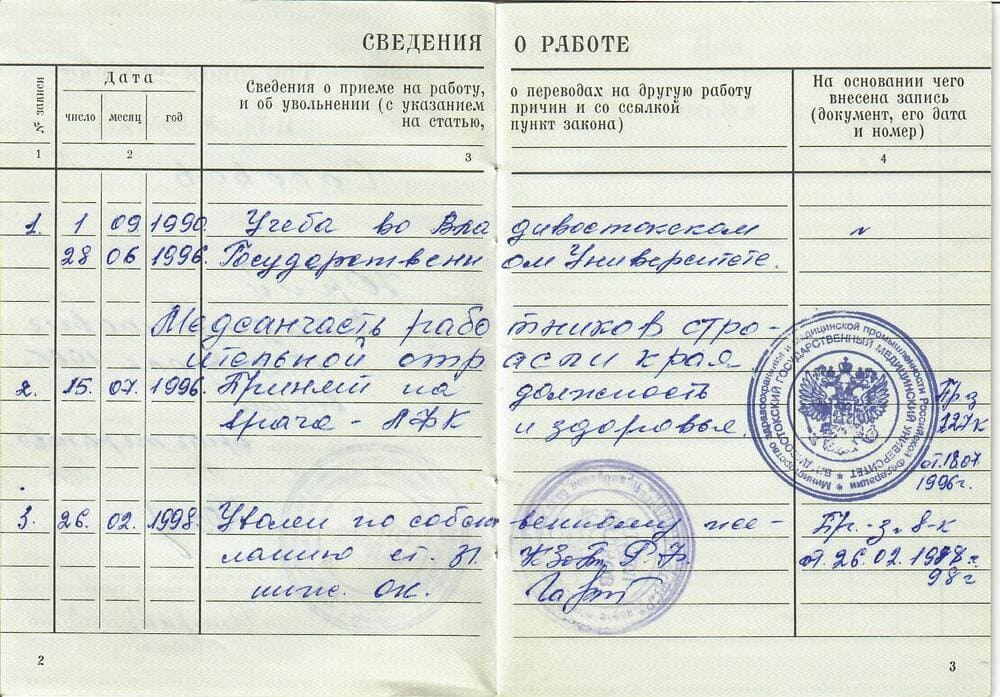 СВЕДЕНИЯ О РАБОТЕ
№ записи
Дата
число месяц год
Сведения о приеме на работу, о переводах на другую работу
и об увольнении (с указанием причин и со ссылкой
на статью, пункт закона)
На основании чего
внесена запись
(документ, его дата
и номер)
1 2 3 4
1. 1 09 1990. Учеба во Владивостокском
28 06 1996. Государственном Университете.
Медсанчасть работников стро-
ительной отрасли края
2. 15. 07. 1996. Принят на должность
врача - ЛФК и здоровья.
Пр.з
127к
от 18.07
1996г.
3. 26. 02. 1998. Уволен по собственному же-
ланию ст. 31 КЗоТ Р.Ф.
инс. ОК.
Пр.-з. 8-к
от. 26.02.
98г
Министерство здравоохранения и медицинской промышленности Российской Федерации
ВЛАДИВОСТОКСКИЙ ГОСУДАРСТВЕННЫЙ МЕДИЦИНСКИЙ УНИВЕРСИТЕТ
2
3